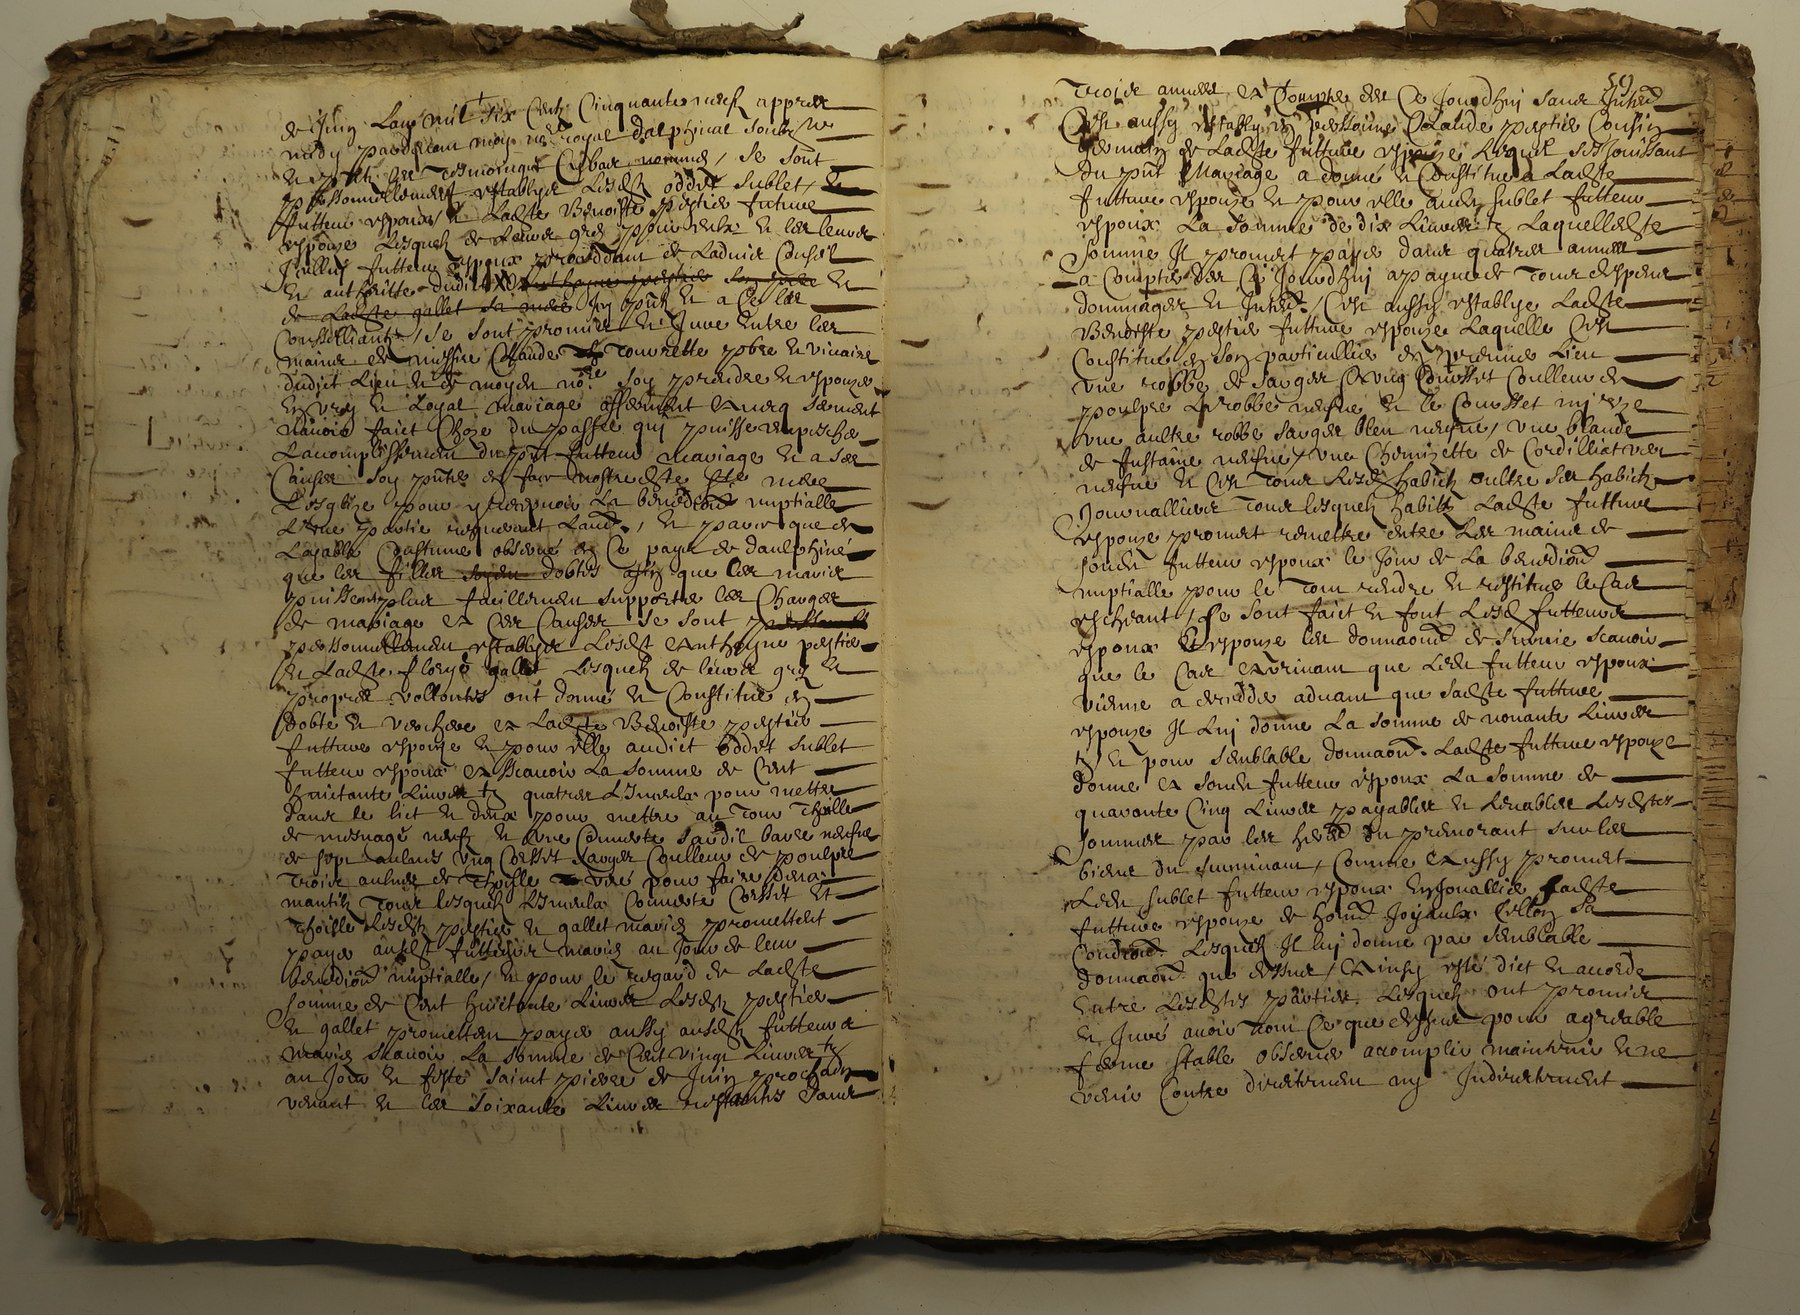 de Juin Lan mil six Cent Cinquante neuf appres
midy pardevant moy no.re royal dalphinal soubz ne
et les tesmoingtz Cybas nommes / se sont
personnellement establys Lesdtz oddet sublet /
futteur espoux / et Ladte Benoiste pestier future
espouze Lesquelz de leurs gres pour eulx et les leurs
futteur espoux proceddant de Ladvis Conseil
et authoritte dudict Anthoyne pestier son pere et
de Ladte gallet sa mere et a Ce les
Conseilliantz / se sont promis et Jure Entre les
mains de messire Claude tourrette pbre et vicaire
dudict Lieu et de moyen no.re soy prendre en espouze
En vray et Loyal mariage afferment Avecq serment
navoir faict Choze du passse quy puisse empescher
Lacomplissement du pnt futteur mariage et a ses
Causes soy pnter en face nostredte ste mere
Lesglize pour y recepvoir La benediction nuptialle
Lune partie requerant Laut. / et parce que de
Layable Coustume observe en Ce pays de daulphine
que les filles soyen dobtes afin que les maris
puissent plus facillement supporter les Charges
de mariage et Ces Causes se sont
personnellement establys Lesdt Anthoyne pestier
Et Ladte fleurye gallet Lesquelz de leurs gres et
propres vollontes ont donne et Constitue en
dobte et verchere a Ladte Benoiste pestier
future espouze et pour elle audict oddet sublet
futteur espoux a scavoir La somme de Cent
huictante Livres tz quatres Linceulx pour mettre
dans le lict et deux pour mettre au tour thoille
de mesnage neufz et une Couverte sardil barre neufve
de sept aulnes ung Corsset sarge Coulleur de poulpre
troix aulnes de thoille pour faire deux
mantilz tous lesquelz Linceulx Couverte Corsset et
thoille Lesdtz pestier et gallet maries promettent
payer ausdt futteurs maries au Jour de leur
benediction nuptialle / et pour le regard de Ladte
somme de Cent huictante Livres Lesdtz pestier
et gallet promettent payer aussy ausdtz futteurs
maries scavoir La somme de Cent vingt Livres tz
au Jour et feste sainct pierre de Juin prochain
venant et les soixante Livres restantes dans
59
troix annees et Compter des Ce Jourdhuy sans Interest
Cest aussy estably en personne Claude pestier Cousin
germain de Ladte future espouze Lequel sesjouissant
du pnt Mariage a donne et Constitue a Ladte
future espouze et pour elle audt sublet futteur
espoux La somme de dix Livres tz Laquelle dte
somme Il promect payer dans quatres annees
a Compter des Ce Jourdhuy a payne de tous despens
dommages et Intherest / Cest aussy establye Ladte
Benoiste pestier future espouze Laquelle Cest
Constitue en son particullier en premier Lieu
une robbe de sarge Avec ung Corsset Coulleur de
poulpre La robbe neufve et le Corsset my uze
une aultre robbe sarge bleu neufve / une blaude
de fustaine neufve / une Chemizette de Cordilliat vert
neufve et Ces tous Lesdt habitz oultre ses habitz
Journalliers tous lesquelz habitz Ladte future
espouze promet remettre entre Les mains de
sondt futteur espoux le Jour de La benediction
nuptialle pour le tout rendre et restitue le Cas
escheant / se sont faict et font Lesd futteurs
espoux Et espouze les donnaons de survie scavoir
que le Cas Arrivant que Ledt futteur espoux
vienne a decedder advant que sadte future
espouze Il Luy donne La somme de nonante Livres
tz et pour semblable donnaon Ladte future espouze
donne a sondt futteur espoux La somme de
quarante Cinq Livres payables et Levables Lesdtes
sommes par les hers du premorant sur les
biens du survivant, Comme Aussy promet
Ledt sublet futteur espoux Enjoualler Ladte
future espouze de honn. Joyaulx sellon sa
Condiction Lesquelz Il luy donne par semblable
donnaon que dessus / Ainsy este dict et accorde
Entre Lesdtes parties Lesquelz ont promis
et Jure avoir tout Ce que dessus pour agreable
ferme stable observer accomplir maintenir et ne
venir Contre directement ny Indirectement